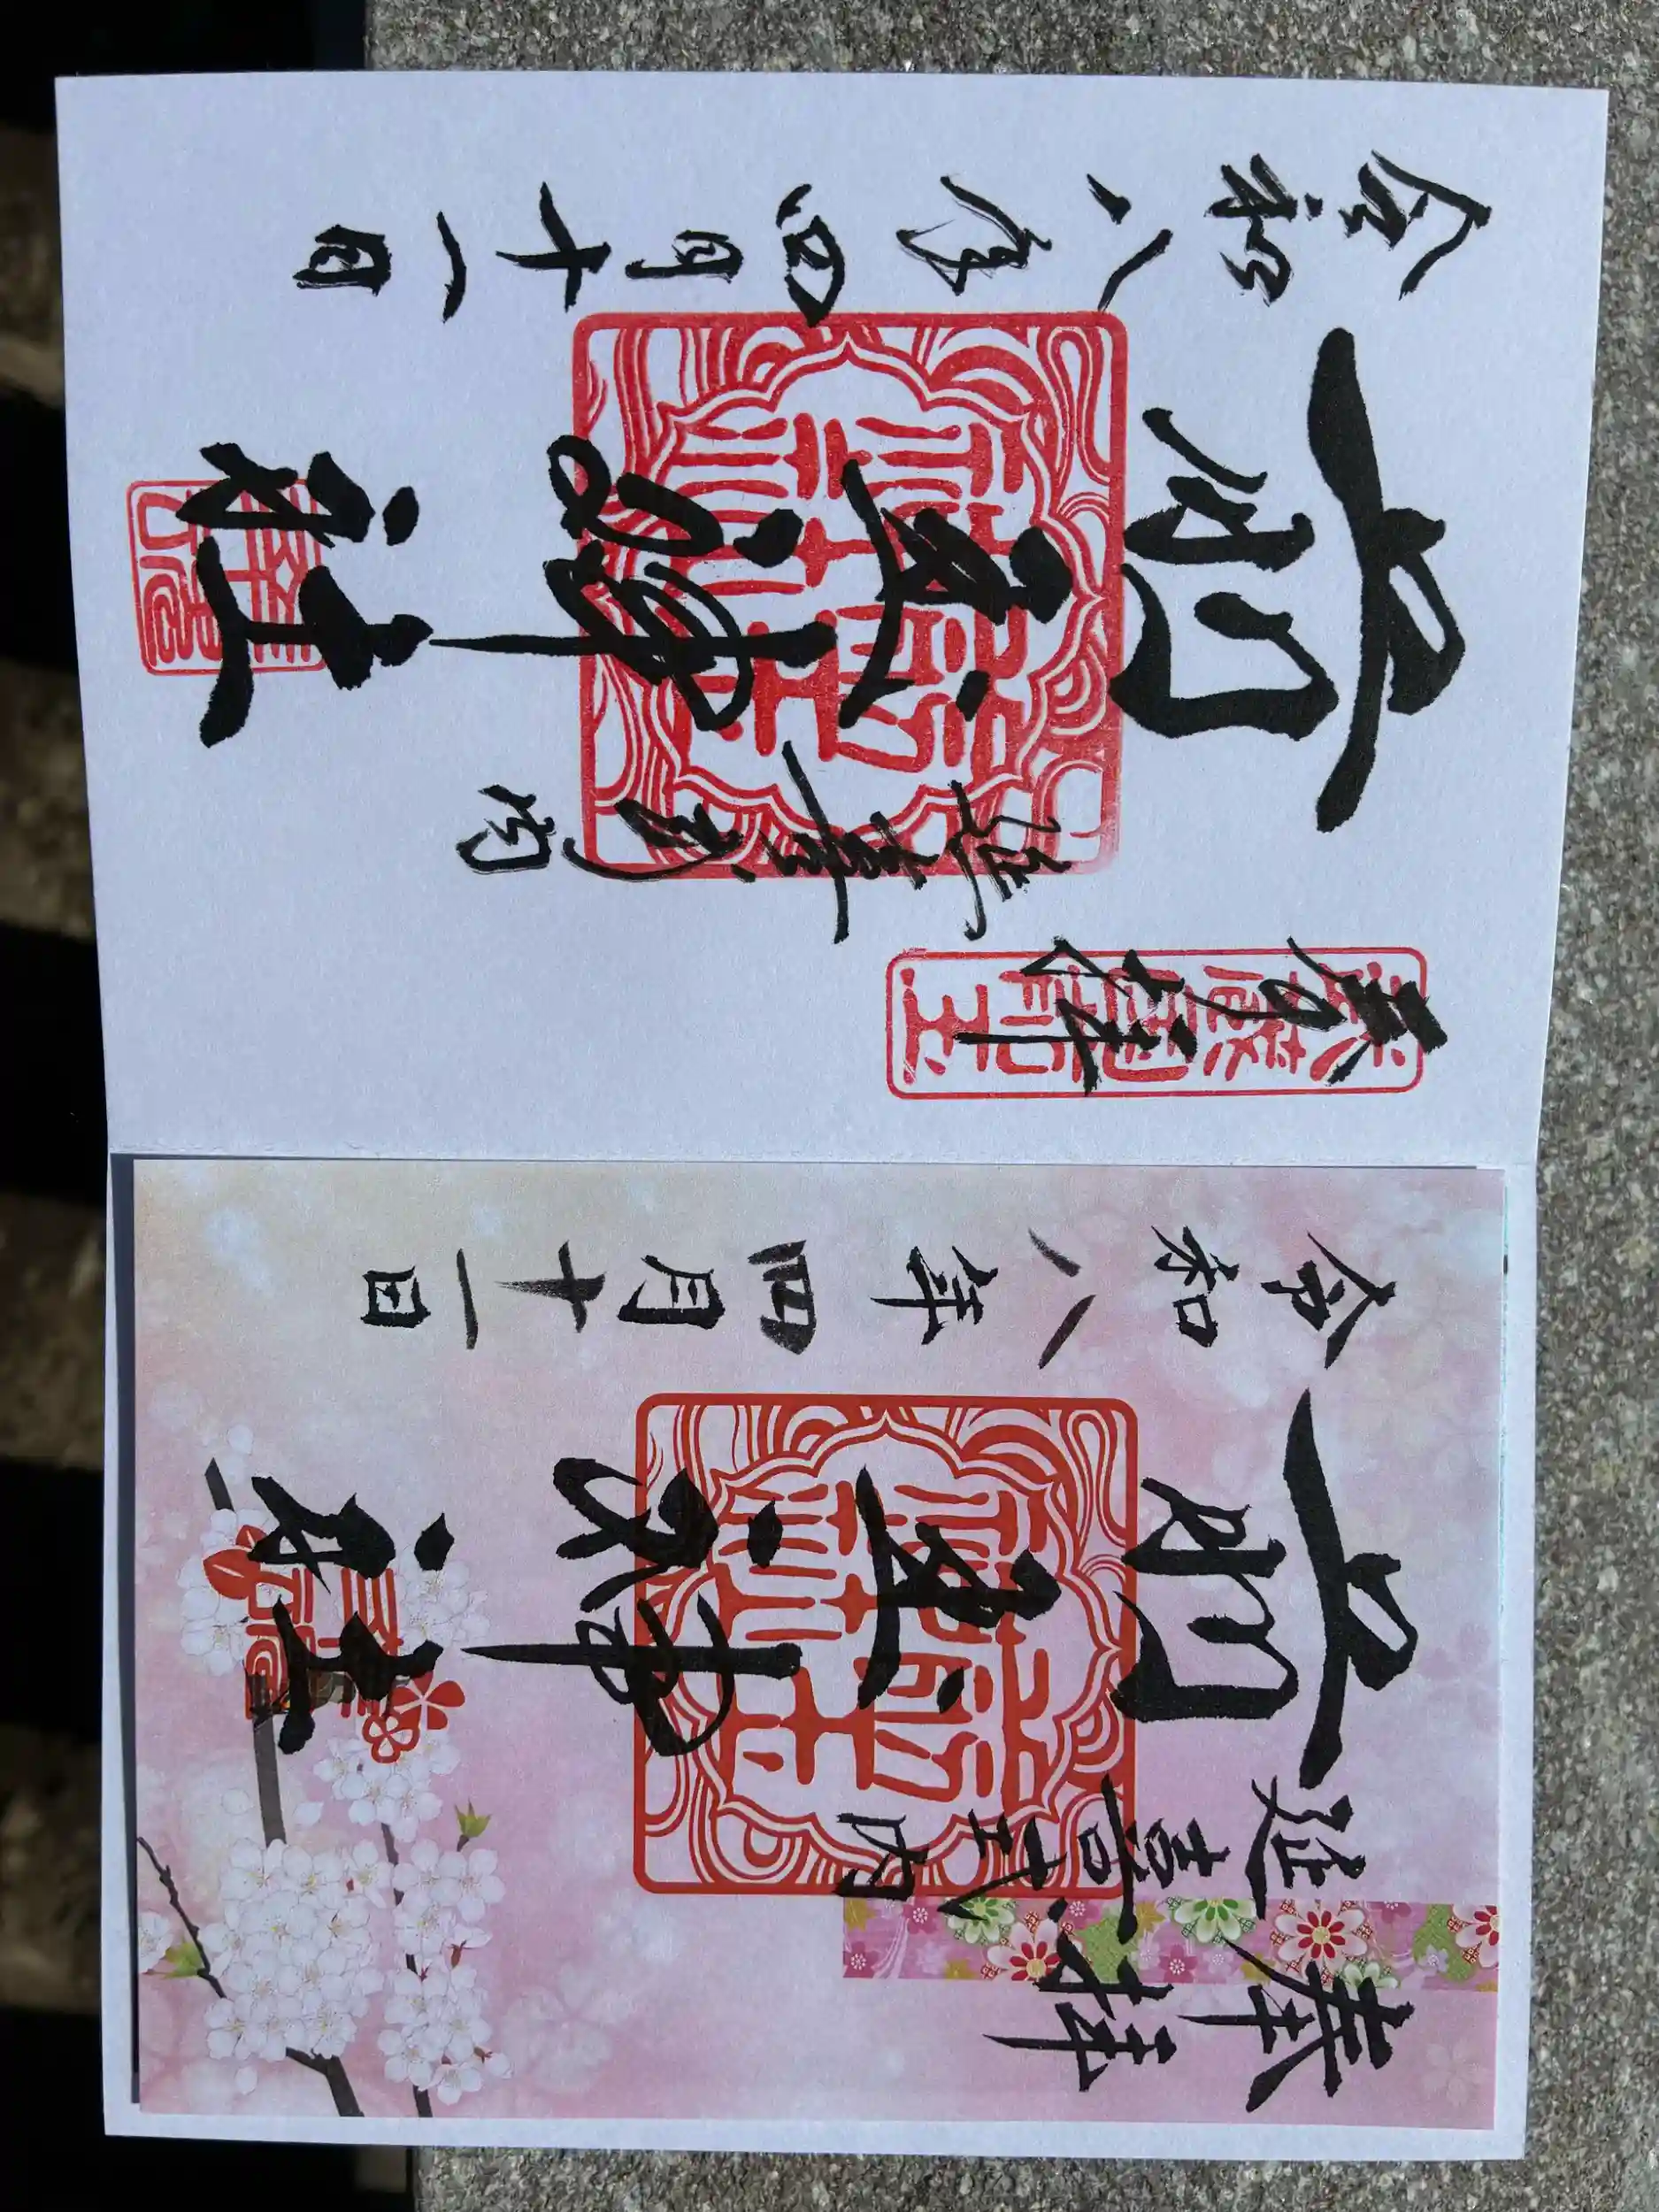 奉拝
延喜式内
前玉神社
令和八年四月十一日
奉拝
延喜式内
前玉神社
令和八年四月十一日